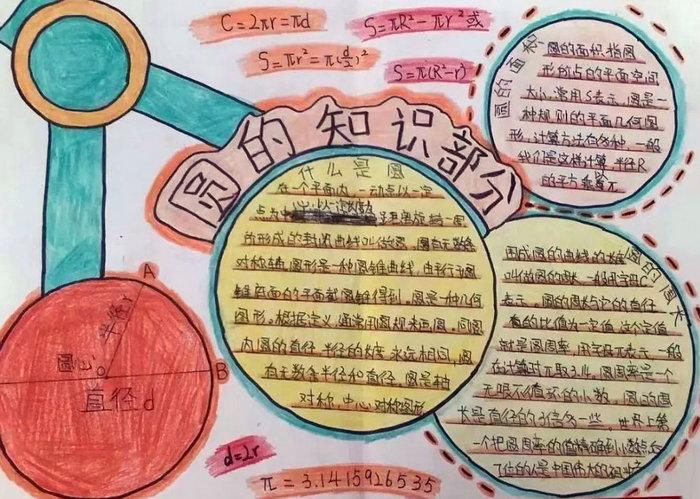 C=2πr=πd
S=πR²-πr²或
S=πr²=π(d/2)²
S=π(R²-r)
圆的知识部分
什么是圆
在一个平面内,一动点以一定
点为中心,以一定长度
为距离旋转一周
所形成的封闭曲线叫做圆。圆有无数条
对称轴,圆形是一种圆锥曲线,由平行于圆
锥底面的平面截圆锥得到。圆是一种几何
图形。根据定义,通常用圆规来画圆。同圆
内圆的直径、半径的长度永远相同,圆
有无数条半径和直径。圆是轴
对称、中心对称图形
圆的面积
圆的面积指圆
形所占的平面空间
大小,常用S表示。圆是一
种规则的平面几何图
形,计算方法有多种,一般
我们是这样计算,半径R
的平方乘
圆的周长
围成圆的曲线的长
叫做圆的周长,一般用字母C
表示。圆的周长与它的直径
的比值为一定值,这个定值
就是圆周率,用字母π表示,一般
在计算时π取3.14,圆周率是一个
无限不循环的小数。圆的周
长是直径的3倍多一些,世界上第
一个把圆周率的值精确到小数点后
7位的人是中国伟大的祖冲之
A
半径r
圆心
O
B
直径d
d=2r
π=3.1415926535